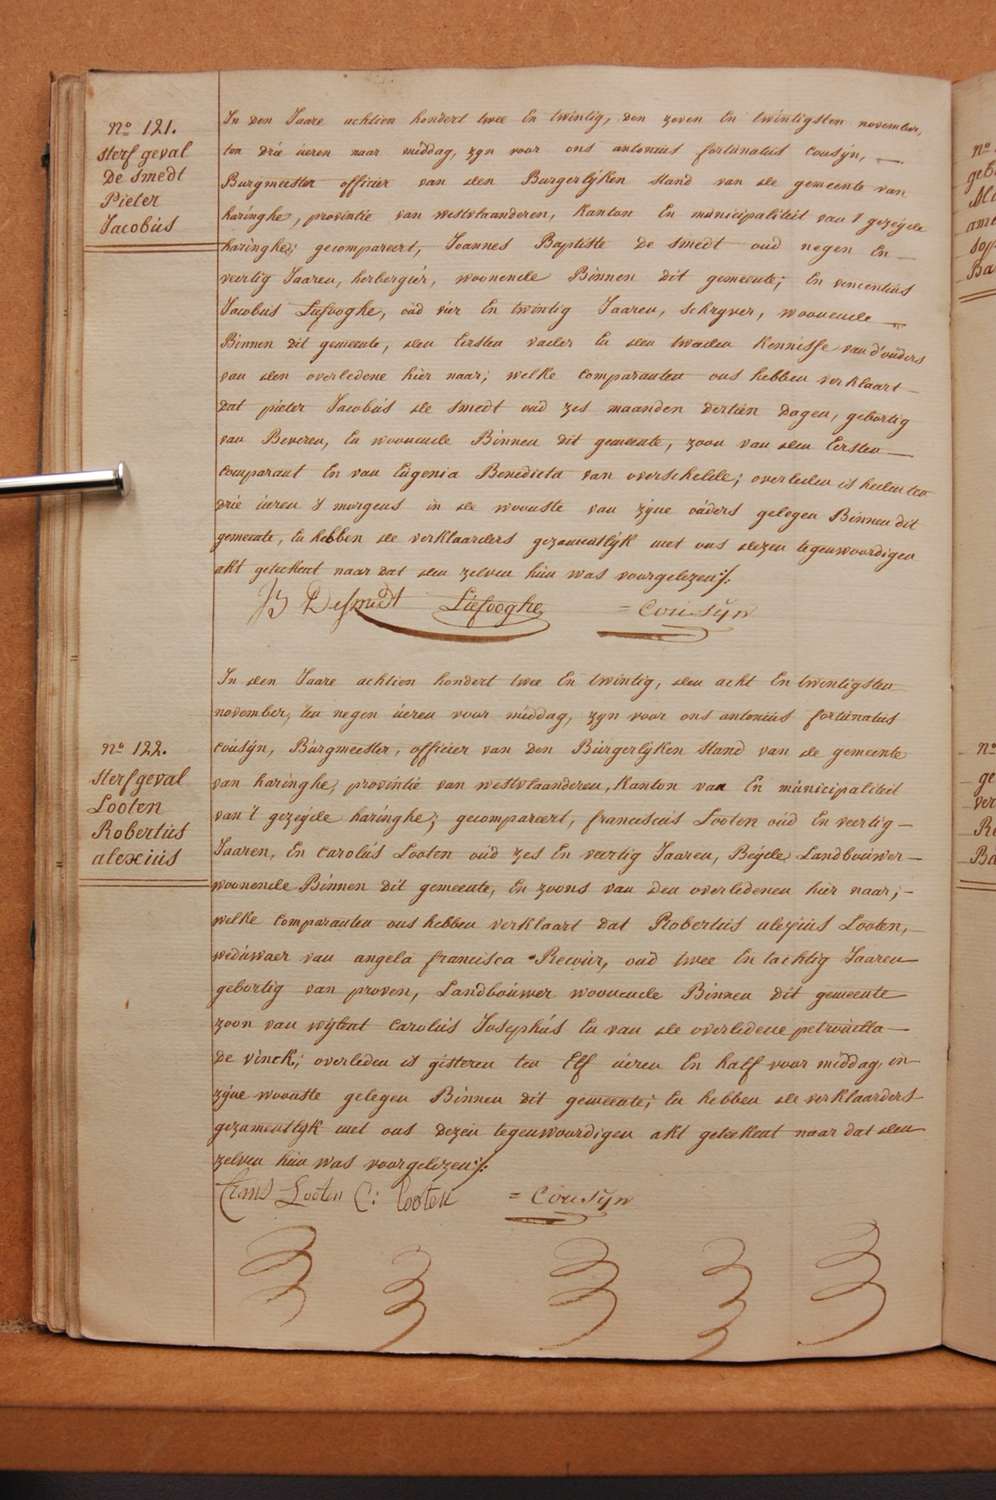 No 121.
sterf geval
De Smedt
Pieter
Jacobus
In den Jaare achtien hondert twee En twintig, den zeven En twintigsten november,
ten drie ueren naar middag, zyn voor ons antonius fortunatus cousyn,
Burgmeester officier van den Burgerlyken stand van de gemeente van
haringhe, provintie van westvlaanderen, Kanton En municipaliteit van 't gezeyde
haringhe; gecompareert, Joannes Baptiste De Smedt oud negen En
veertig Jaaren, herbergier, woonende Binnen dit gemeente; En vincentius
Jacobus Liefooghe, oud vier En twintig Jaaren, schryver, woonende
Binnen dit gemeente, den Eersten vader En den tweeden Kennisse van d'ouders
van den overledene hier naar; welke comparanten ons hebben verklaart
dat pieter Jacobus de Smedt oud zes maanden dertien dagen, gebortig
van Beveren, En woonende Binnen dit gemeente, zoon van den Eersten
comparant En van Eugenia Benedicta van overschelde; overleden is heden ten
drie ueren 's morgens in de woonste van zyne ouders gelegen Binnen dit
gemeente, En hebben de verklaarders gezamentlyk met ons dezen tegenwoordigen
akt geteekent naar dat den zelven hun was voorgelezen ./.
JB Desmedt Liefooghe = Cousyn
No 122.
sterf geval
Looten
Robertus
alexius
In den Jaare achtien hondert twee En twintig, den acht En twintigsten
november, ten negen ueren voor middag, zyn voor ons antonius fortunatus
cousyn, Burgmeester, officier van den Burgerlyken stand van de gemeente
van haringhe, provintie van westvlaanderen, Kanton van En municipaliteit
van 't gezeyde haringhe; gecompareert, franciscus Looten oud En veertig
Jaaren, En carolus Looten oud zes En veertig Jaaren, Beyde Landbouwer
woonende Binnen dit gemeente, En zoons van den overledenen hier naar;
welke comparanten ons hebben verklaart dat Robertus alexius Looten,
weduwaer van angela francisca Recour, oud twee En tachtig Jaaren
gebortig van proven, Landbouwer woonende Binnen dit gemeente
zoon van wylent Carolus Josephus En van de overledene petronilla
De vinck; overleden is gisteren ten Elf ueren En half voor middag, in
zyne woonste gelegen Binnen dit gemeente; En hebben de verklaarders
gezamentlyk met ons dezen tegenwoordigen akt geteekent naar dat den
zelven hun was voorgelezen ./.
Looten C: Looten = Cousyn